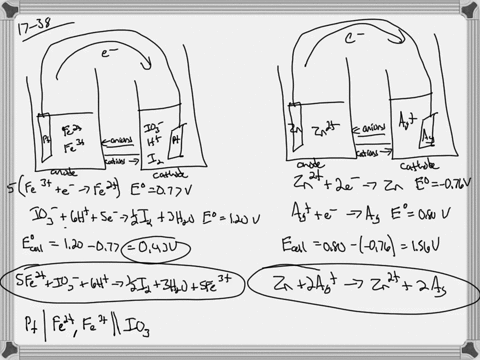 17-38
e-
Pt
Fe2+
Fe3+
anions
cations
IO3-
H+
I2
Pt
anode
cathode
5(Fe3+ + e- → Fe2+) E° = 0.77 V
IO3- + 6H+ + 5e- → 1/2 I2 + 3H2O E° = 1.20 V
E°cell = 1.20 - 0.77 = 0.43 V
5Fe2+ + IO3- + 6H+ → 1/2 I2 + 3H2O + 5Fe3+
Pt | Fe2+, Fe3+ || IO3
e-
Zn
Zn2+
anions
cations
Ag+
Ag
anode
cathode
Zn2+ + 2e- → Zn E° = -0.76 V
Ag+ + e- → Ag E° = 0.80 V
Ecell = 0.80 - (-0.76) = 1.56 V
Zn + 2Ag+ → Zn2+ + 2Ag